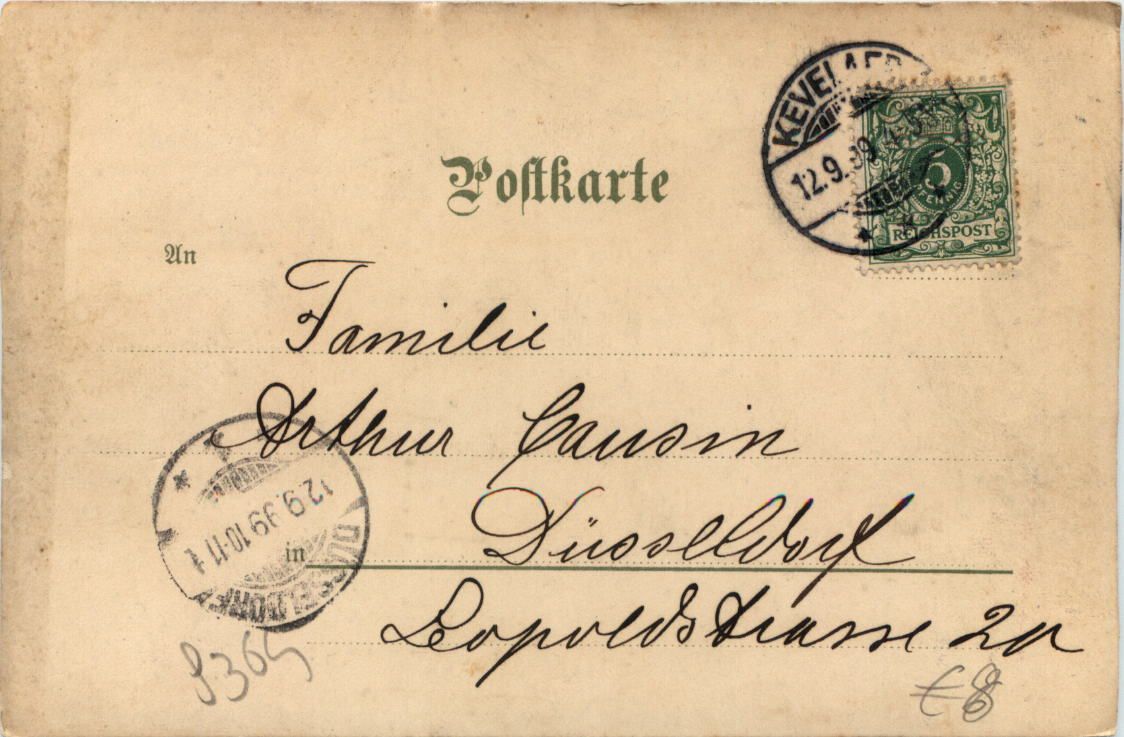 KEVELAER
12.9.99 4-5
5
PFENNIG
REICHSPOST
Postkarte
An
Familie
Arthur Causin
in Düsseldorf
Leopoldstrasse 20
DÜSSELDORF
12.9.99.10-11
€8